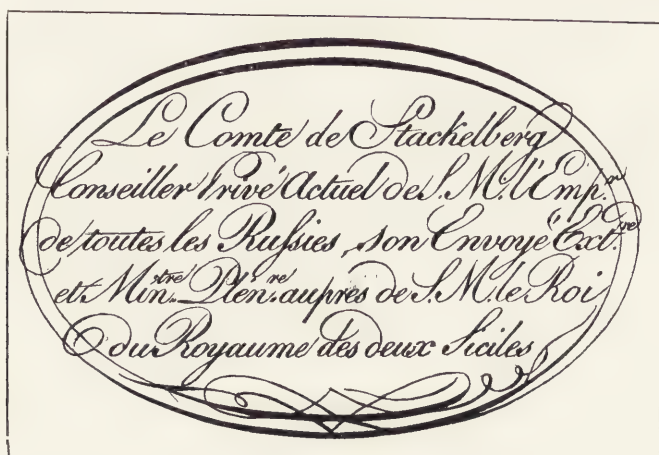 Le Comte de Stackelberg
Conseiller Privé Actuel de S. M. l'Emp.r
de toutes les Russies, son Envoyé Ext.re
et Min.stre Plén.re auprès de S. M. le Roi
du Royaume des deux Siciles